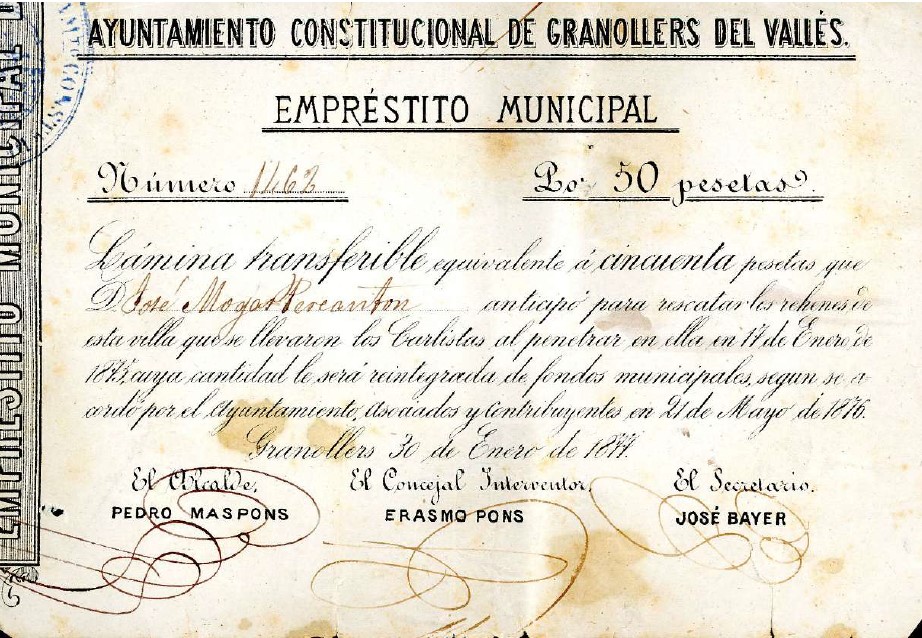 AYUNTAMIENTO CONSTITUCIONAL DE GRANOLLERS DEL VALLÉS.
EMPRÉSTITO MUNICIPAL
Número 1462
Por 50 pesetas.
Lámina transferible equivalente á cincuenta pesetas que
D. José Mogas anticipó para rescatar los rehenes de
esta villa que se llevaron los Carlistas al penetrar en ella en 17 de Enero de
1875, cuya cantidad le será reintegrada de fondos municipales, segun se a-
cordó por el Ayuntamiento, Asociados y Contribuyentes en 21 de Mayo de 1876.
Granollers 30 de Enero de 1877.
El Alcalde,
PEDRO MASPONS
El Concejal Interventor,
ERASMO PONS
El Secretario.
JOSÉ BAYER
EMPRÉSTITO MUNICIPAL